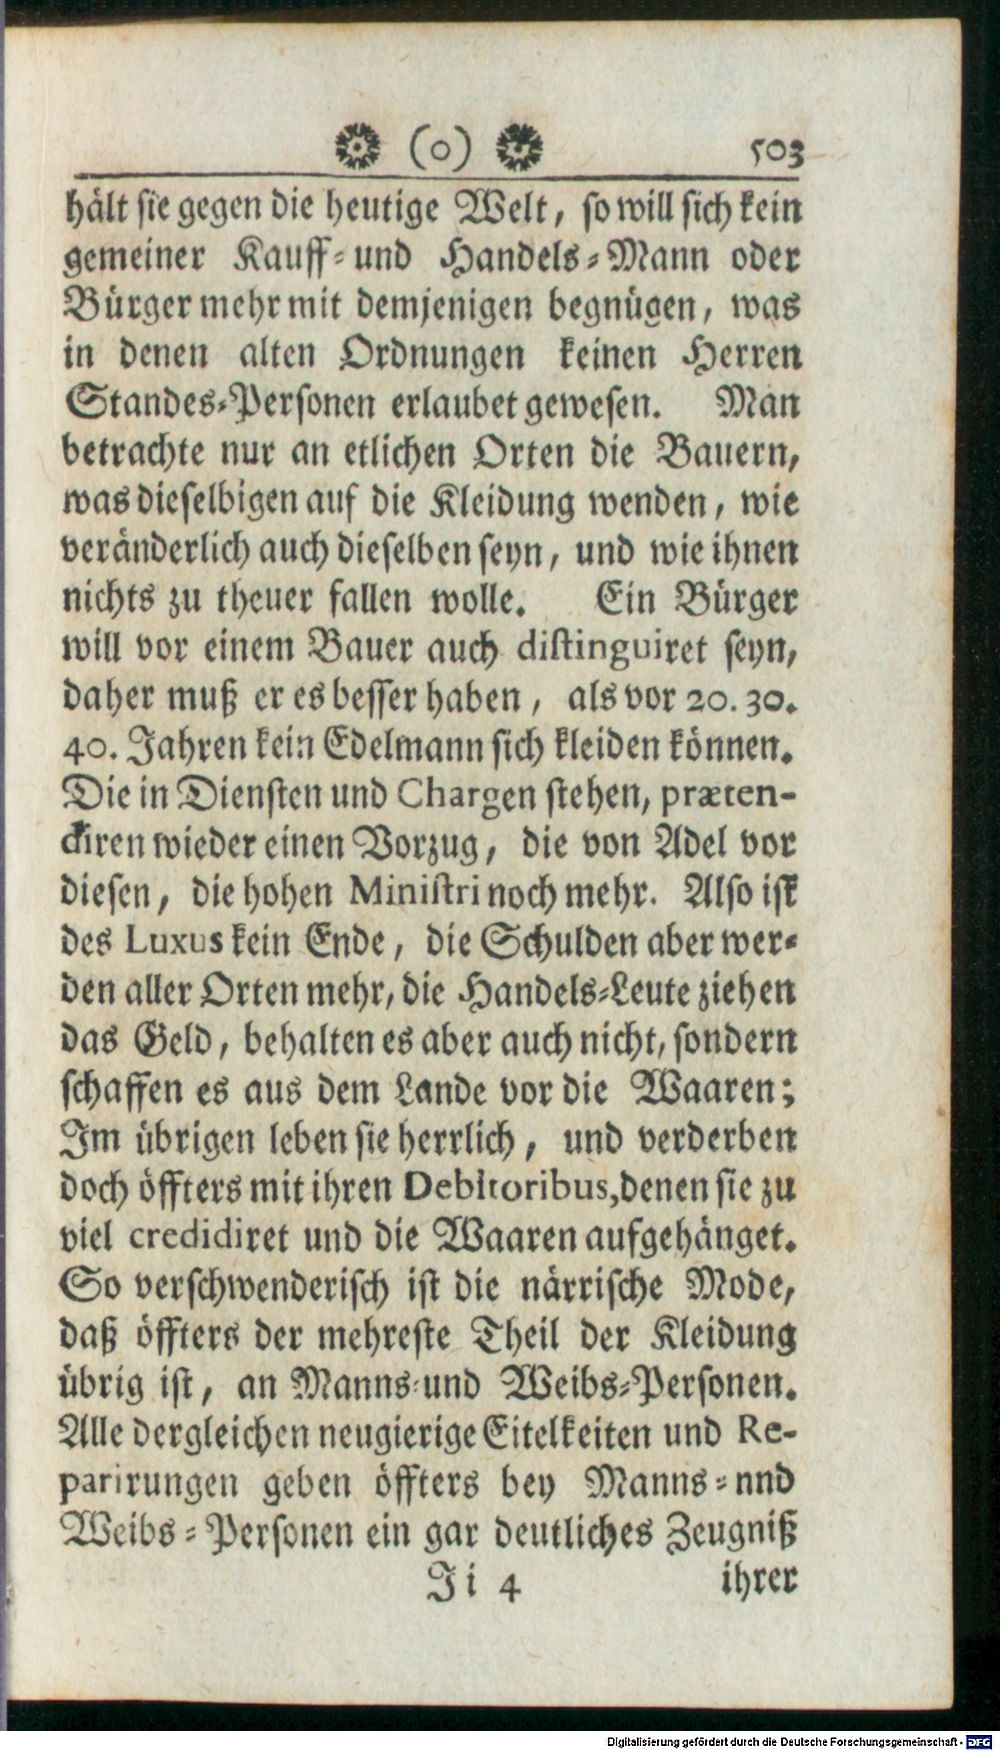 (o) 503
hält sie gegen die heutige Welt, so will sich kein
gemeiner Kauff- und Handels-Mann oder
Bürger mehr mit demjenigen begnügen, was
in denen alten Ordnungen keinen Herren
Standes-Personen erlaubet gewesen. Man
betrachte nur an etlichen Orten die Bauern,
was dieselbigen auf die Kleidung wenden, wie
veränderlich auch dieselben seyn, und wie ihnen
nichts zu theuer fallen wolle. Ein Bürger
will vor einem Bauer auch distinguiret seyn,
daher muß er es besser haben, als vor 20. 30.
40. Jahren kein Edelmann sich kleiden können.
Die in Diensten und Chargen stehen, præten-
diren wieder einen Vorzug, die von Adel vor
diesen, die hohen Ministri noch mehr. Also ist
des Luxus kein Ende, die Schulden aber wer-
den aller Orten mehr, die Handels-Leute ziehen
das Geld, behalten es aber auch nicht, sondern
schaffen es aus dem Lande vor die Waaren;
Im übrigen leben sie herrlich, und verderben
doch öffters mit ihren Debitoribus, denen sie zu
viel credidiret und die Waaren aufgehänget.
So verschwenderisch ist die närrische Mode,
daß öffters der mehreste Theil der Kleidung
übrig ist, an Manns- und Weibs-Personen.
Alle dergleichen neugierige Eitelkeiten und Re-
parirungen geben öffters bey Manns- nnd
Weibs-Personen ein gar deutliches Zeugniß
Ji 4 ihrer
Digitalisierung gefördert durch die Deutsche Forschungsgemeinschaft - DFG